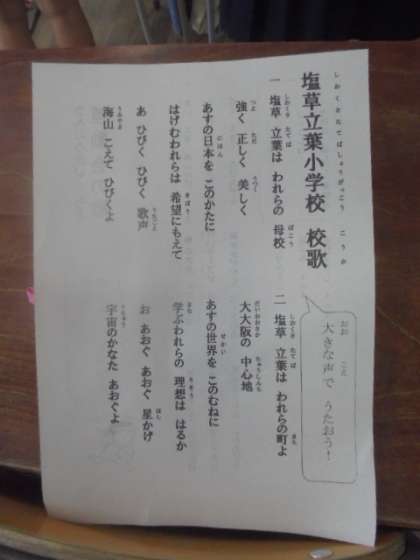 塩草立葉小学校 校歌
大きな声で うたおう!
一 塩草 立葉は われらの 母校
強く 正しく 美しく
あすの日本を このかたに
はげむわれらは 希望にもえて
あ ひびく ひびく 歌声
海山 こえて ひびくよ
二 塩草 立葉は われらの町よ
大大阪の 中心地
あすの世界を このむねに
学ぶわれらの 理想は はるか
お あおぐ あおぐ 星かげ
宇宙のかなた あおぐよ